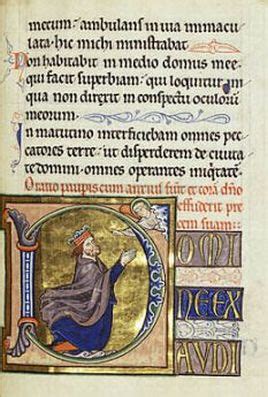 mecum: ambulans in uia inmacu
lata· hic michi ministrabat
Non habitabit in medio domus mee
qui facit superbiam· qui loquitur in
qua non direxit in conspectu oculoru
meorum·
In matutino interficiebam omnes pec
catores terre· ut disperderem de ciuita
te domini· omnes operantes iniqtate·
Oratio paupis cum anxius fuit et corā dño
effuderit pre
cem suam·
D
OMI
NE EX
AVDI